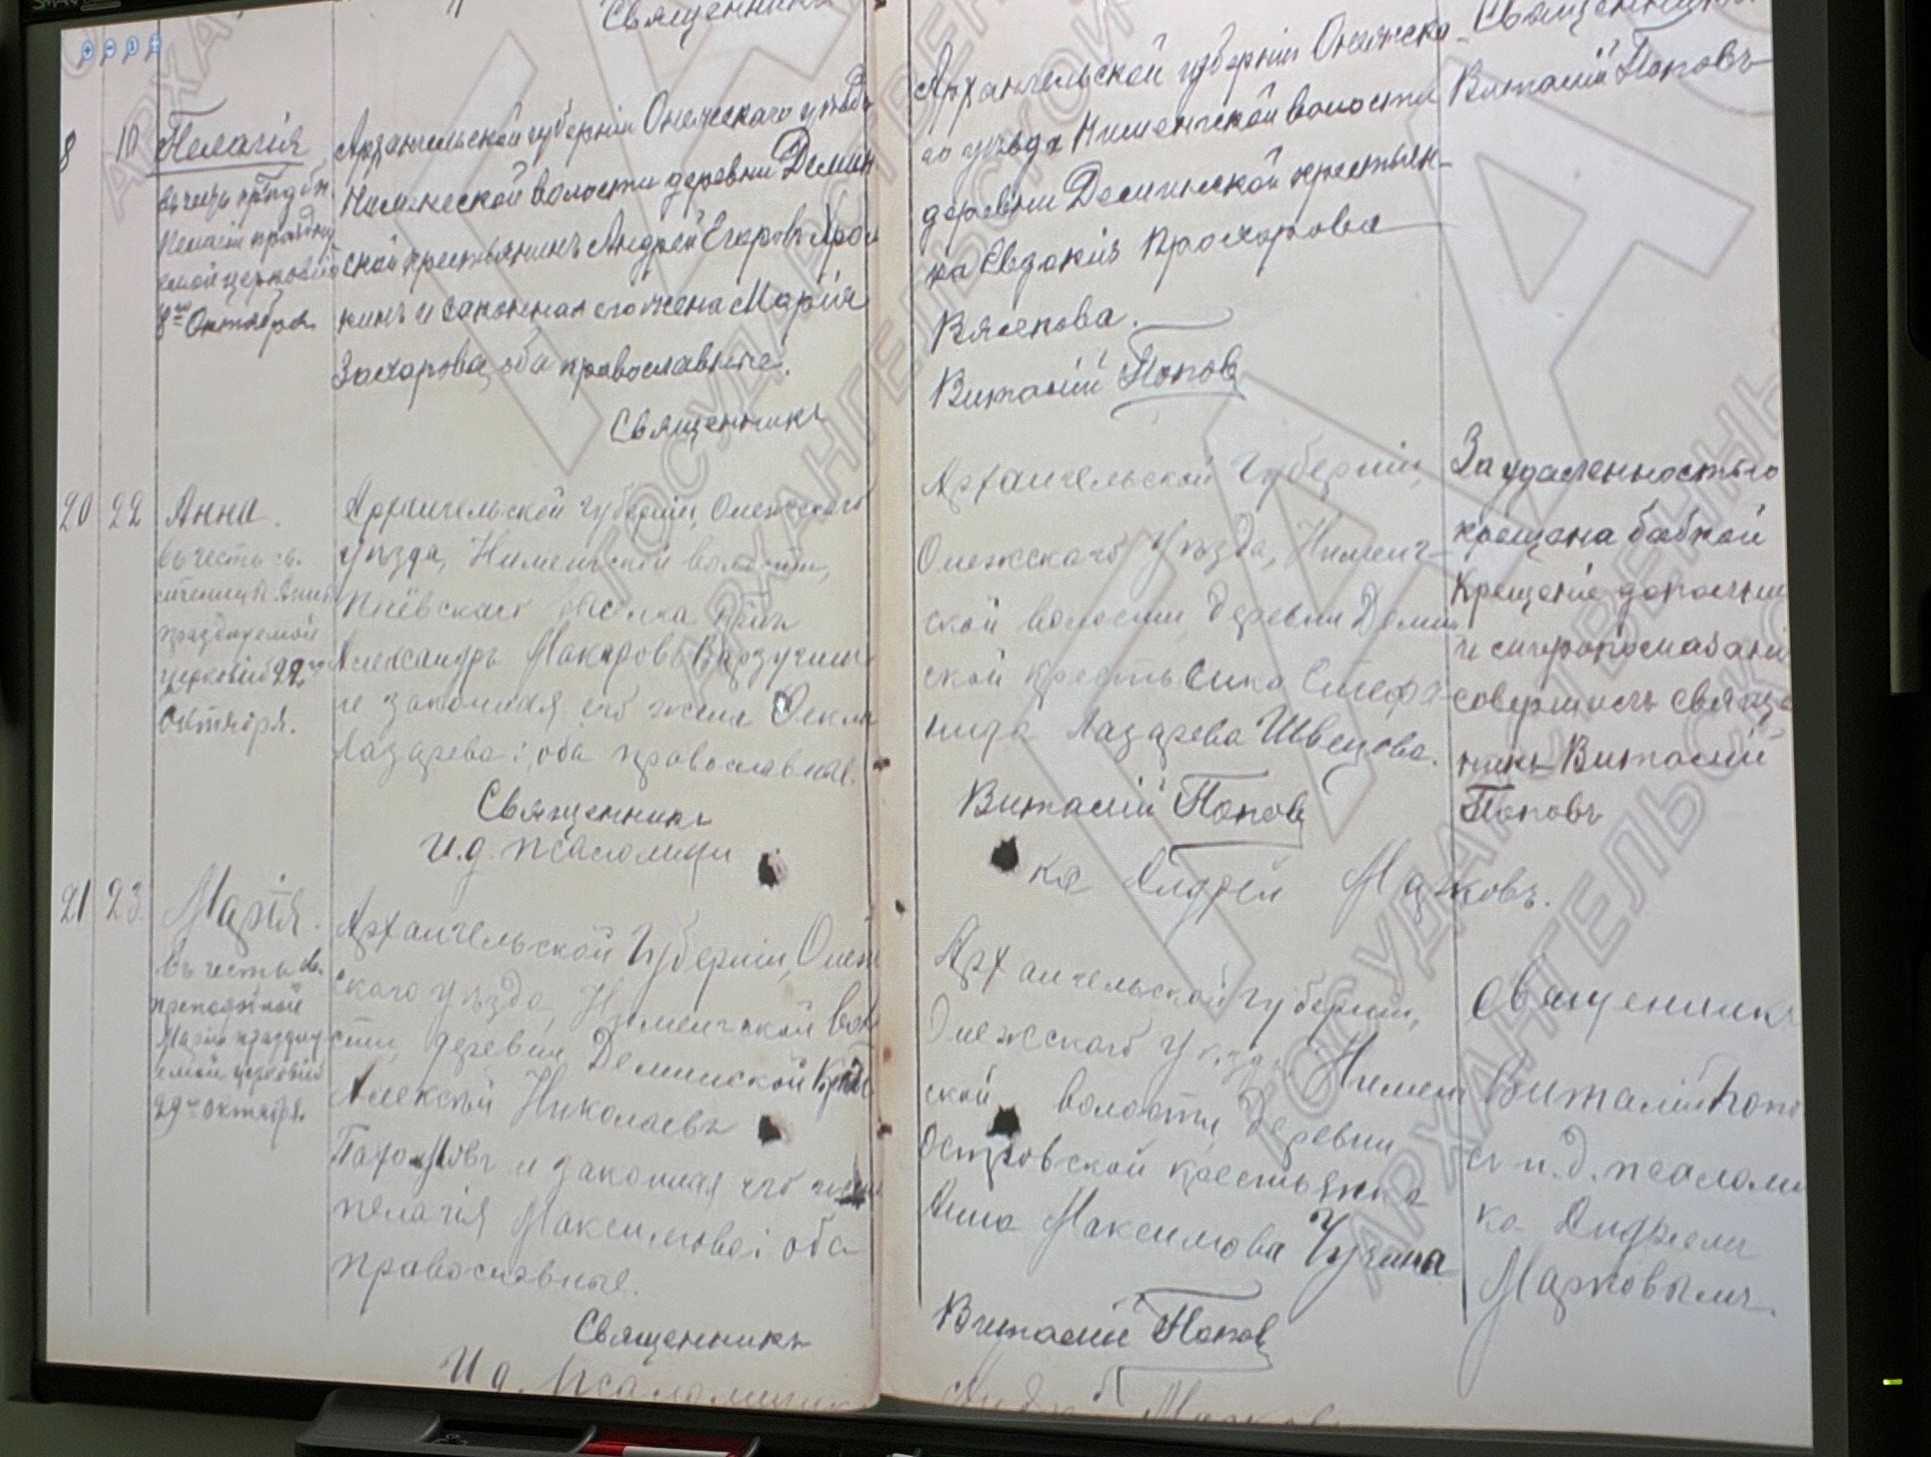 Священникъ
Архангельской губерніи Онежска-
Священникъ
Виталій Поповъ
8
10
Пелагія
въ честь
Пелагіи праздну
емой церковію
8го Октября
Архангельской губерніи Онежскаго уѣзда
Нименгской волости деревни Демин
ской крестьянинъ Андрей Егоровъ
кинъ и законная его жена Марія
Захарова, оба православные.
Священникъ
го уѣзда Нименгской волости
деревни Деминской крестьян-
ка Евдокія Прохорова
Виталій Попов
20
22
Анна.
въ честь св.
праздуемой
церковію 22го
Октября.
Архангельской губерніи, Онежскаго
уѣзда, Нименгской волости,
Александръ Макаровъ Варзугинъ
и законная его жена Ѳекла
Лазарева; оба православные.
Священникъ
И.д. псаломщи
Архангельской губерніи,
Онежскаго уѣзда, Нименг-
ской волости деревни Демин
ской крестьянка Стефа-
нида Лазарева Швецова.
Виталій Попов
ка Андрей Марковъ.
За удаленностью
крещена бабкой
Крещеніе дополни
и миропомазані
совершилъ свяще
никъ Виталій
Поповъ
21
23
Марія.
въ честь св.
преподобной
Маріи праздну-
емой церковію
29го октября.
Архангельской губерніи, Онеж
скаго уѣзда, Нименгской воло
сти, деревни Деминской
Алексѣй Николаевъ
и законная его жена
Пелагія Максимова; оба
православные.
Священникъ
И д. Псаломщик
Архангельской губерніи,
Онежскаго уѣзда, Нименг
ской волости деревни
Островской крестьянка
Анна Максимова
Виталій Попов
Андрей Марков
Священникъ
Виталій Попо
въ и.д. псаломщ
ка Андреем
Марковымъ.